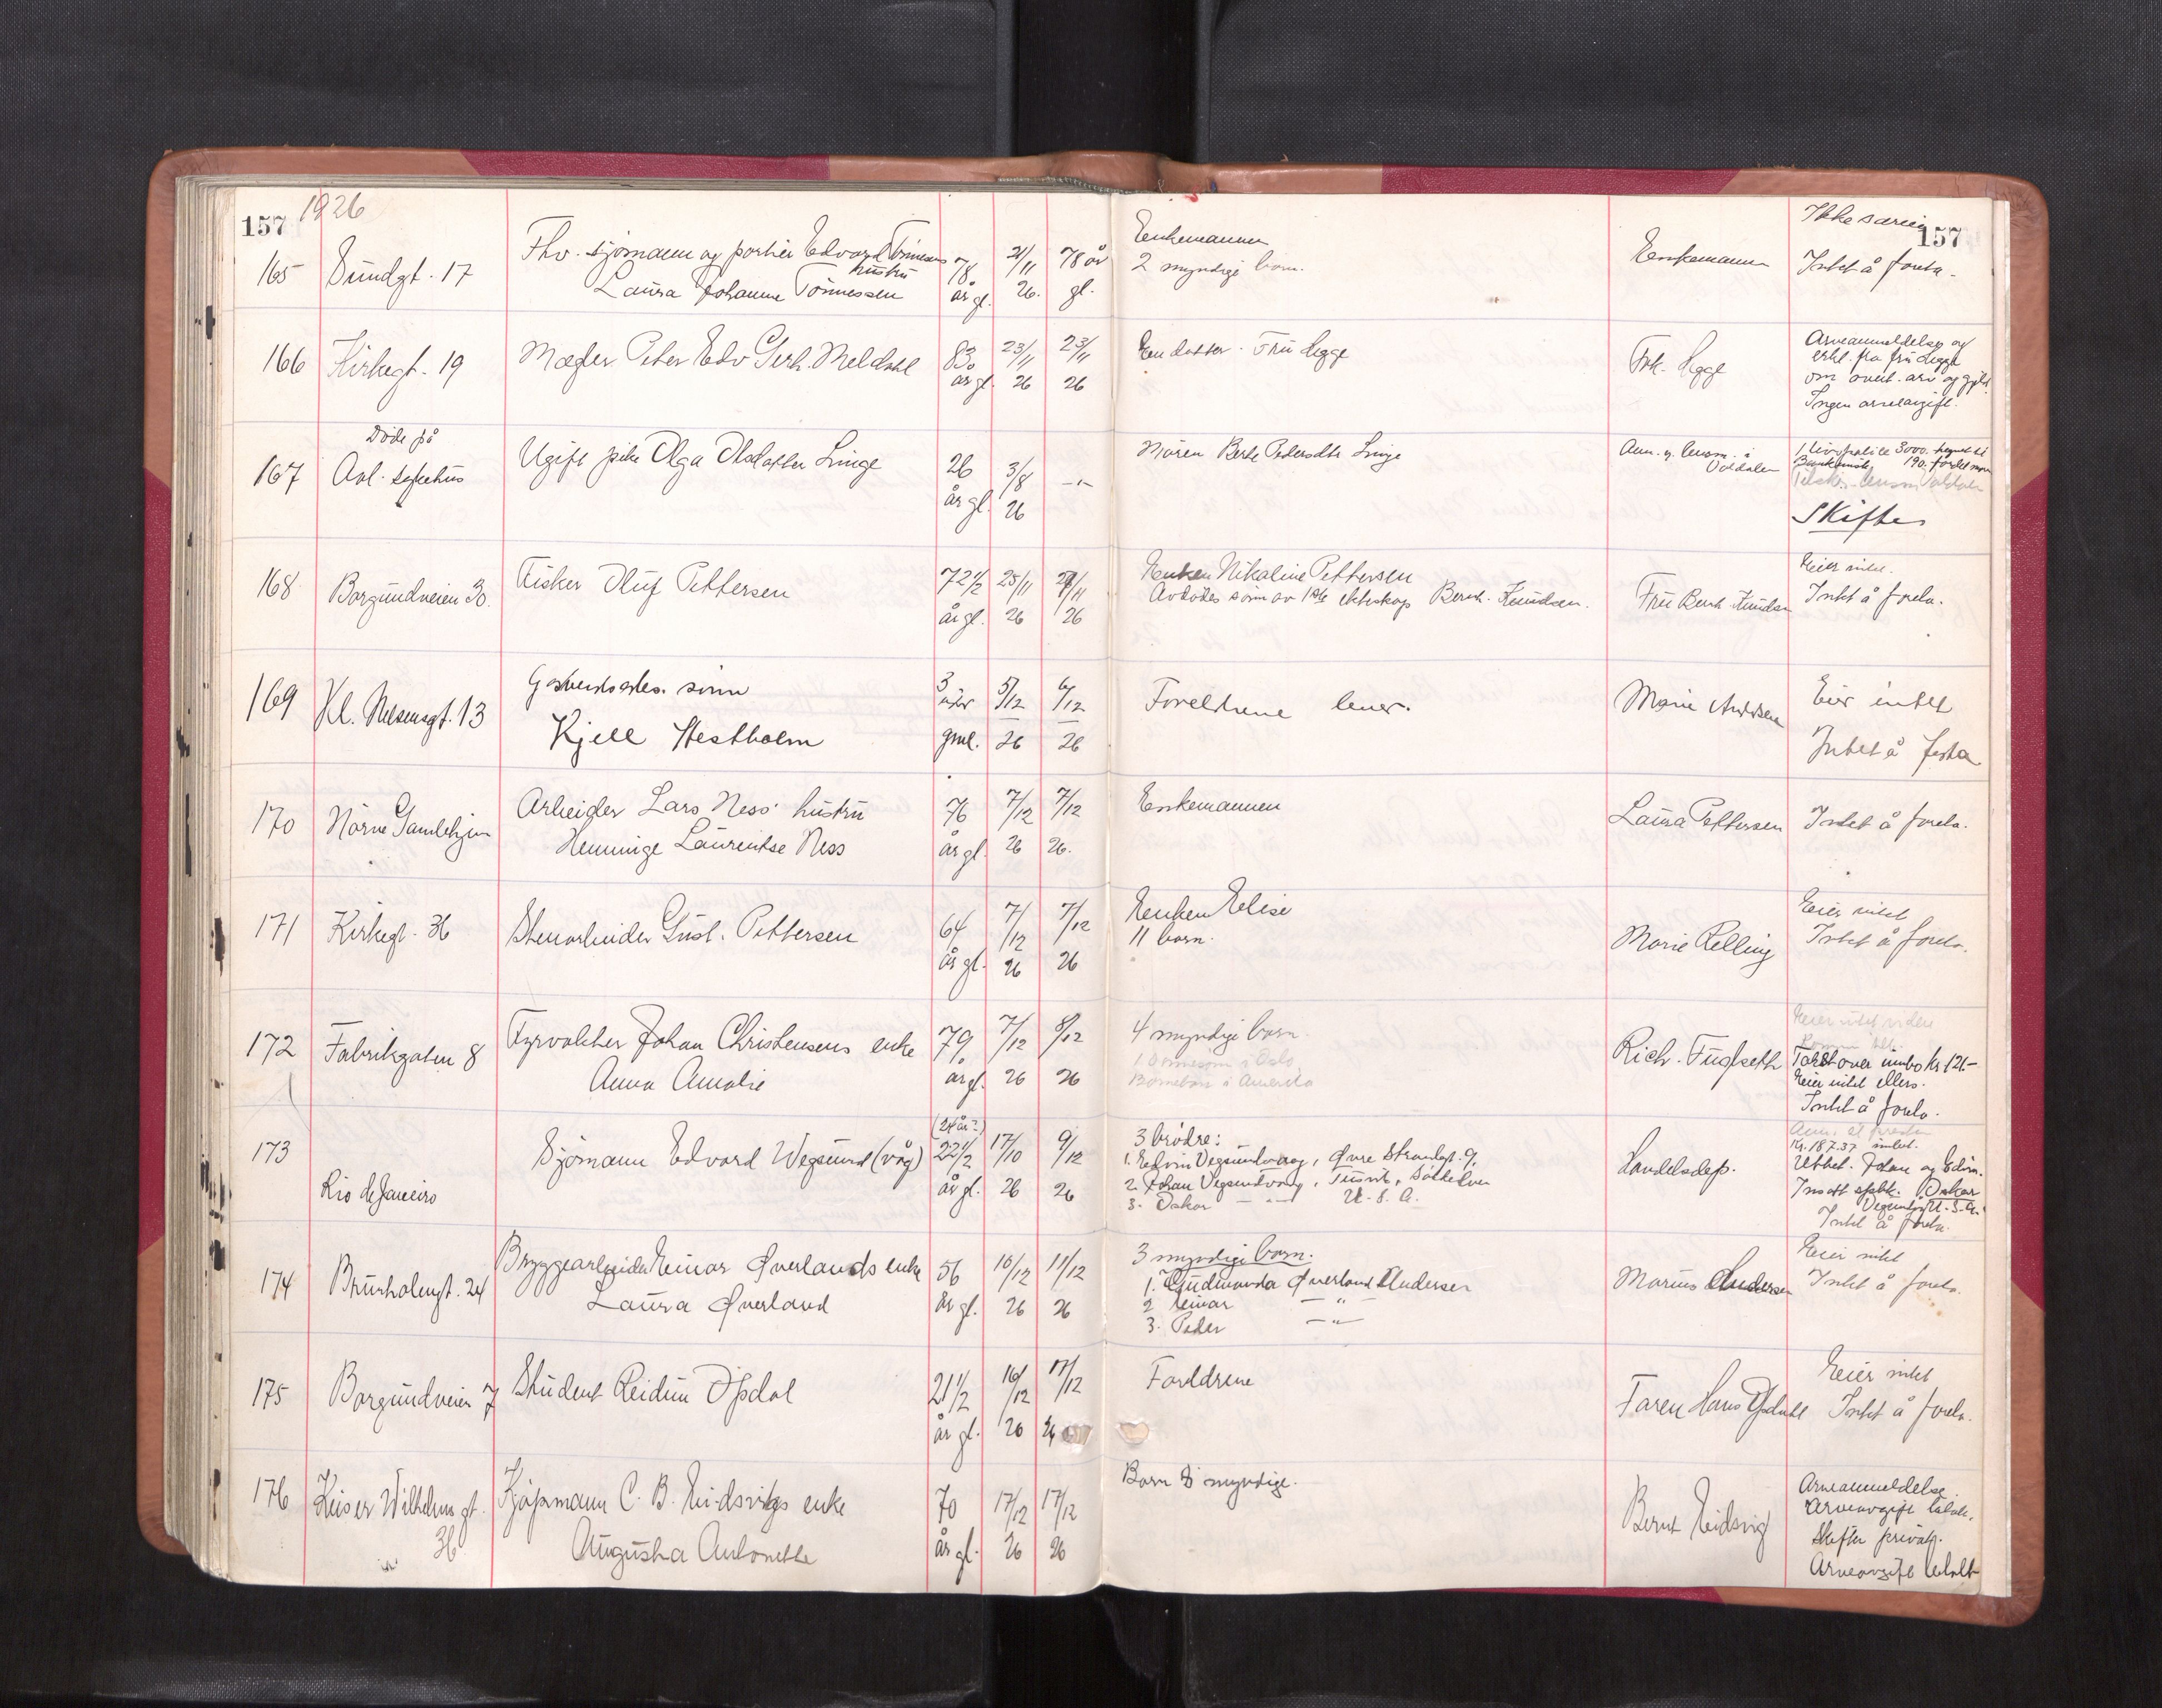 157 1926
165 Sundgt. 17
Fhv. sjømann og portier Edvard Tönnesens
hustru
Laura Johanne Tönnessen
78 år gl.
21/11 26.
78 år gl.
Enkemannen
2 myndige barn.
Enkemannen
Ikke særeie 157
Intet å foreta.
166 Kirkegt. 19
Mægler Peter Edv Gerh. Meldahl
83 år gl.
23/11 26
23/11 26
En datter. Fru Legge
Frk. Legge
Arveanmeldelse og
erkl. fra fru Legge
om overt. arv og gjeld.
Ingen arveavgift.
Døde på
167 Aal. sykehus
Ugift pike Olga Olsdatter Linge
26 år gl.
3/8 26
-"-
Moren Berte Pedersdtr Linge
Anm. g. lensm. i
Valldalen
1 livspolise 3000.
190.
Skiftes
168 Borgundveien 30.
Fisker Oluf Pettersen
72 1/2 år gl.
25/11 26
27/11 26
Enken Nikoline Pettersen
Avdødes sønn av 1ste ekteskap Bernh. Knudsen.
Fru Bernh. Knudsen
Eier intet.
Intet å foreta.
169 Kl. Nilsensgt. 13
sønn
Kjell Hestholm
3 uker gml.
5/12 26
6/12 26
Foreldrene lever.
Marie Andersen
Eier intet
Intet å foreta
170 Nørve Gamlehjem
Arbeider Lars Ness' hustru
Henninge Laurentse Ness
76 år gl.
7/12 26
7/12 26.
Enkemannen
Laura Pettersen
Intet å foreta.
171 Kirkegt. 36
Stenarbeider Gust. Pettersen
64 år gl.
7/12 26
7/12 26
Enken Elise
11 barn.
Marie Relling
Eier intet
Intet å foreta.
172 Fabrikgaten 8
Fyrvokter Johan Christensens enke
Anna Amalie
79 år gl.
7/12 26
8/12 26
4 myndige barn.
i Oslo
Barnebarn i Amerika
Rich. Fuglseth
Eier intet videre
Takst over innbo kr 121.-
Eier intet ellers.
Intet å foreta.
173
Rio de Janeiro
Sjömann Edvard Wegsund (våg)
(24 år?)
22 1/2 år gl.
17/10 26
9/12 26
3 brødre:
1. Edvin Vegsundvaag, Øvre Strandgt. 9.
2. Johan Vegsundvaag,
3. Oskar -"- U.S.A.
Handelsdep.
Kr. 187.37
Utbet. Johan og Edvin.
Insatt spbk. Oskar
Vegsund U.S.A.
Intet å foreta.
174 Brunholmgt. 24
Bryggearbeider Einar Øverlands enke
Laura Øverland
56 år gl.
10/12 26
11/12 26
3 myndige barn.
1. Gudmunda Øverland Andersen
2 Einar -"-
3. Peder -"-
Marius Andersen
Eier intet
Intet å foreta.
175 Borgundveien 7
Student Reidun Opdal
21 1/2 år gl.
16/12 26
17/12 26
Foreldrene
Faren Hans Opdahl
Eier intet
Intet å foreta.
176 Keiser Wilhelms gt.
36
Kjøpmann C. B. Eidsvigs enke
Augusta Antonette
70 år gl.
17/12 26
17/12 26
Barn 8 myndige.
Bernt Eidsvig
Arveanmeldelse.
Arveavgift betalt.
Skifter privat.
Arveavgift betalt